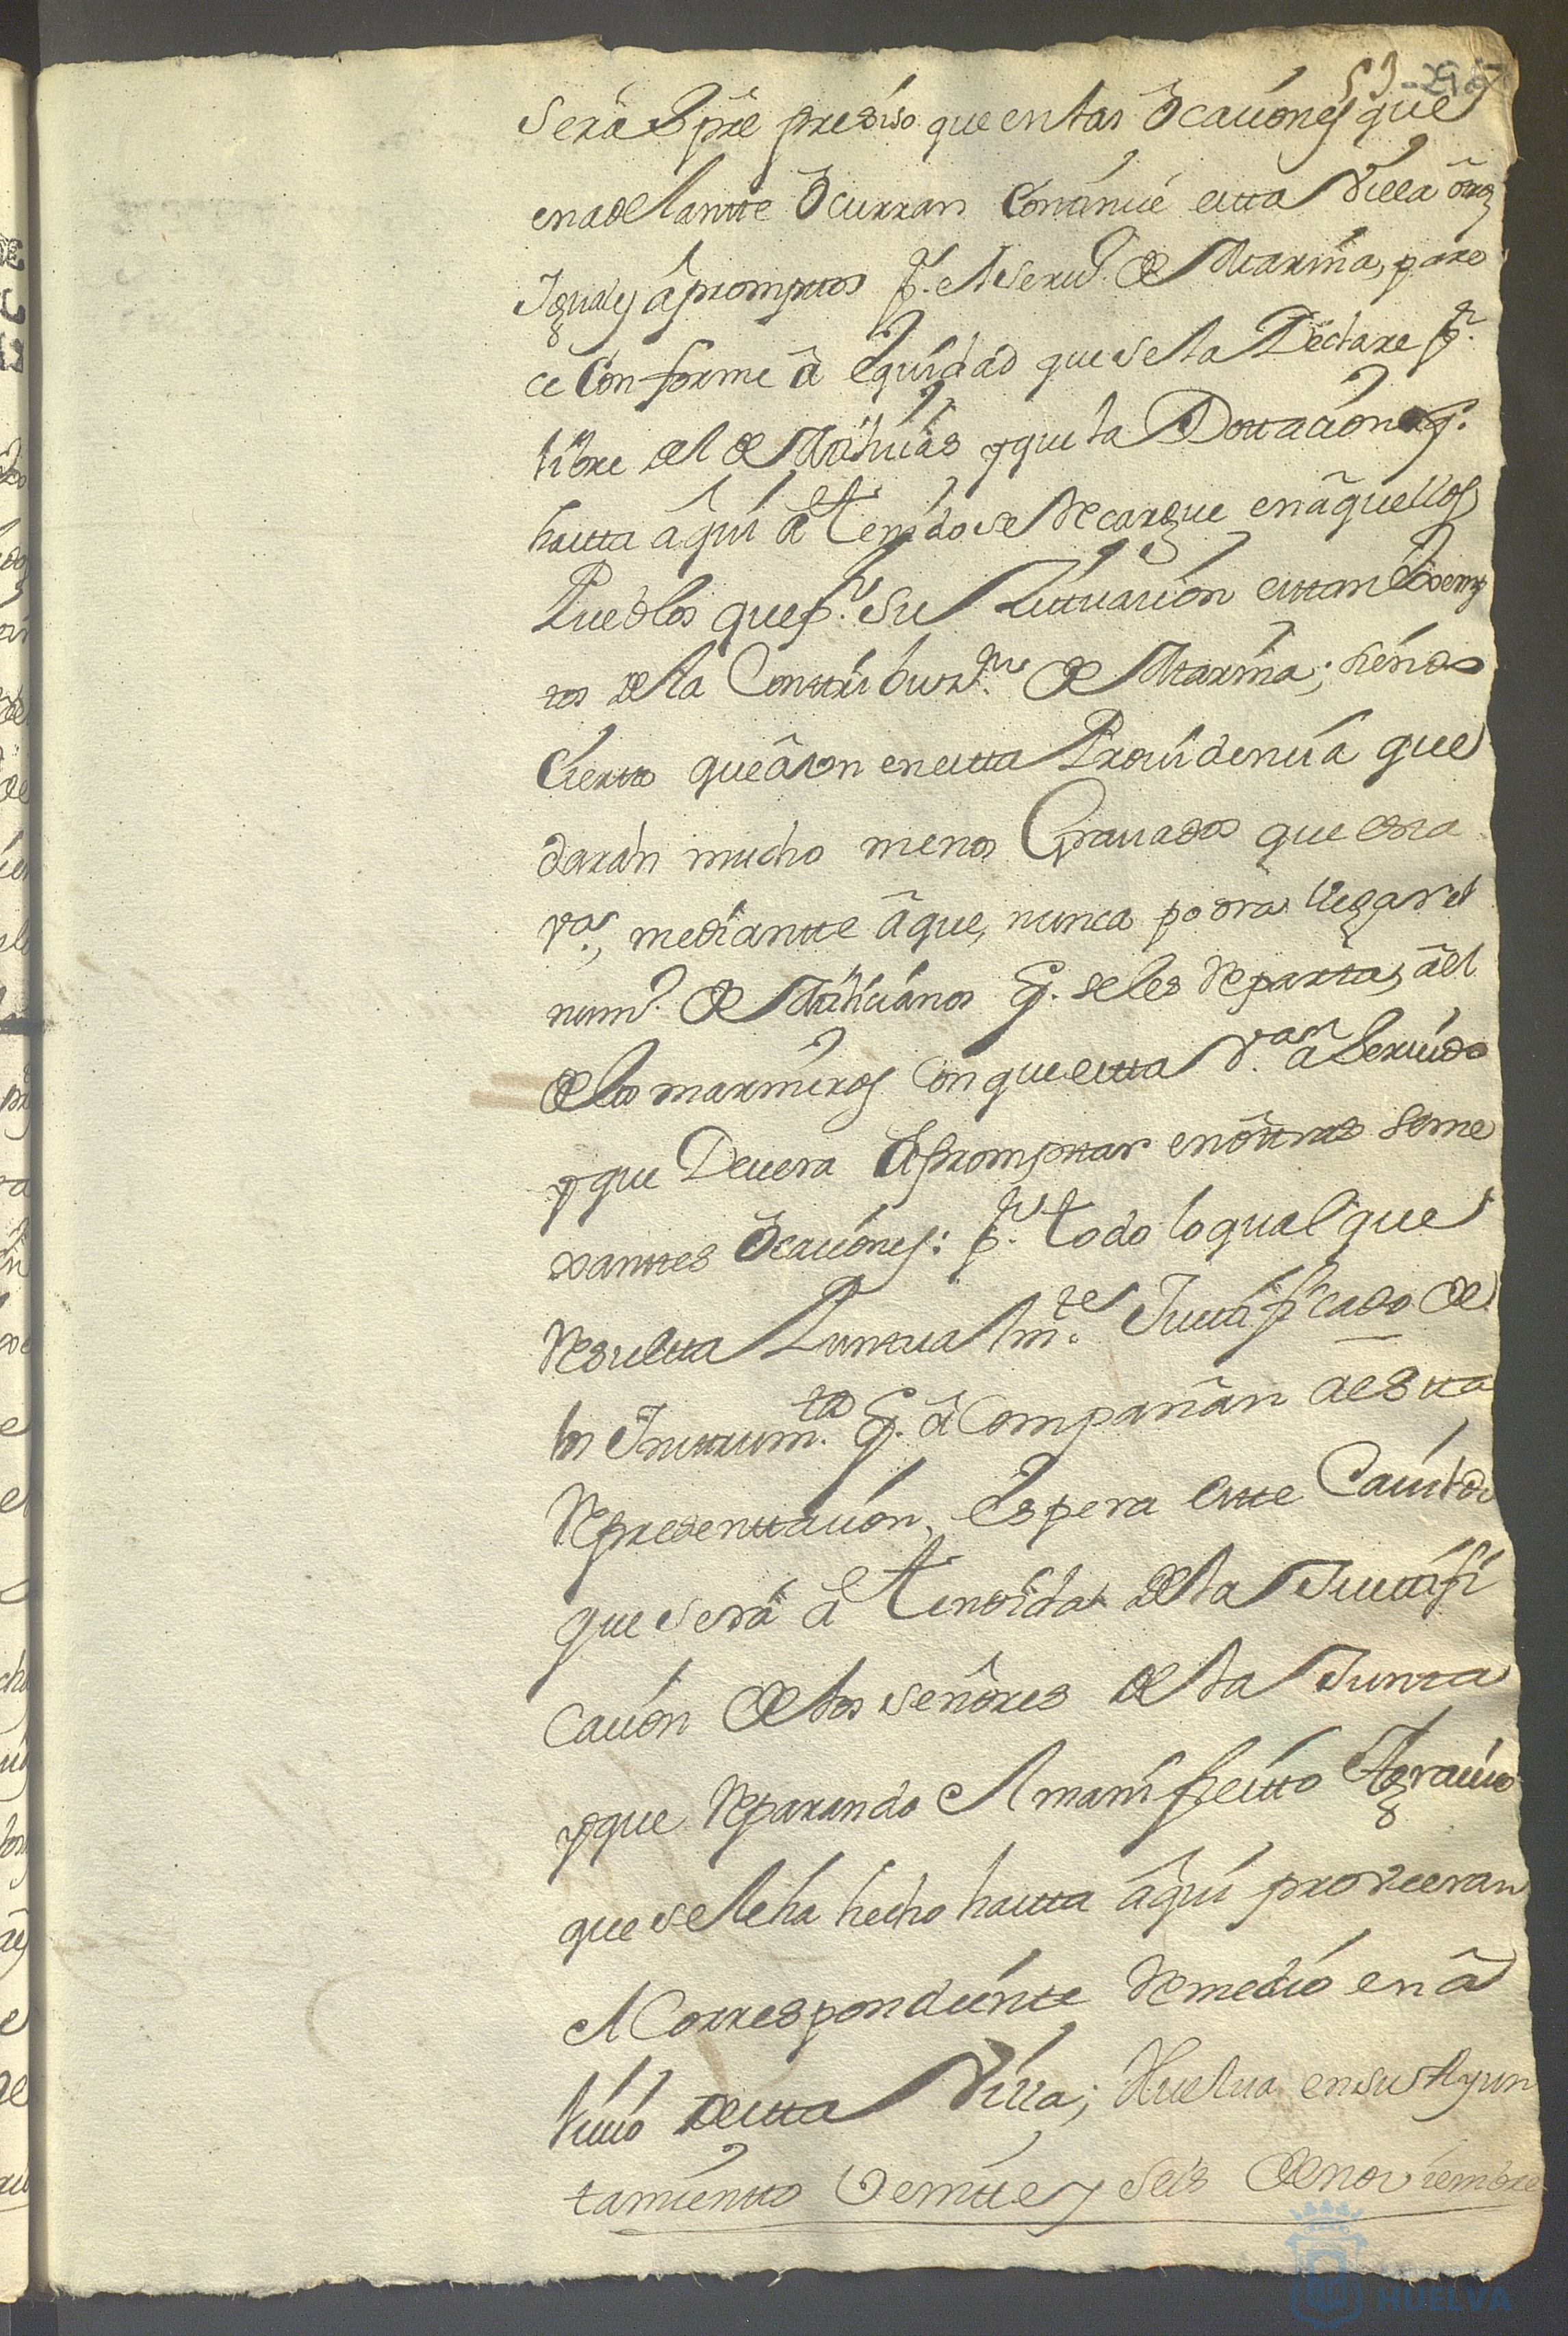 53
será Spre presiso que en las Ocaciones que
en adelantte Ocurran Continúe estta Villa ôtros
Iguales âpromptos pr. el seruo. de Marina, pare
ce Conforme â equidad que se la Declare pr.
libre del de Milicias y que la Dottacion q.
hastta âquí â tenido se Recargue en âquellos
Pueblos que pr. su Sittuacion esttan Exemp
tos de la Conttribuzn. de Marina; siendo
Ciertto que âun en estta Prouidencia que
darán mucho menos Grauados que esta
va., mediantte âque, nunca podrá llegar el
numo. de Milicianos q. se les Repartta, âel
de los marineros Con que estta va. â Seruido
y que Deuera Aprompttar en ôttras seme
xanttes Ocaciones: pr. todo lo qual que
Resultta Puntualmte. Justificado de
los Insttrumtos. q. âCompañan â esta
Representtacion, espera estte Cauildo
que será âttendida de la Justifi
cacion de los señôres de la Junta
y que Reparando el manifiestto Agrauio
que se le ha hecho hastta âquí proveeran
el Correspondiente Remedio en â
liuio de estta Villa; Huelua en su Ayun
tamientto Veintte y seis de noviembre
HUELVA